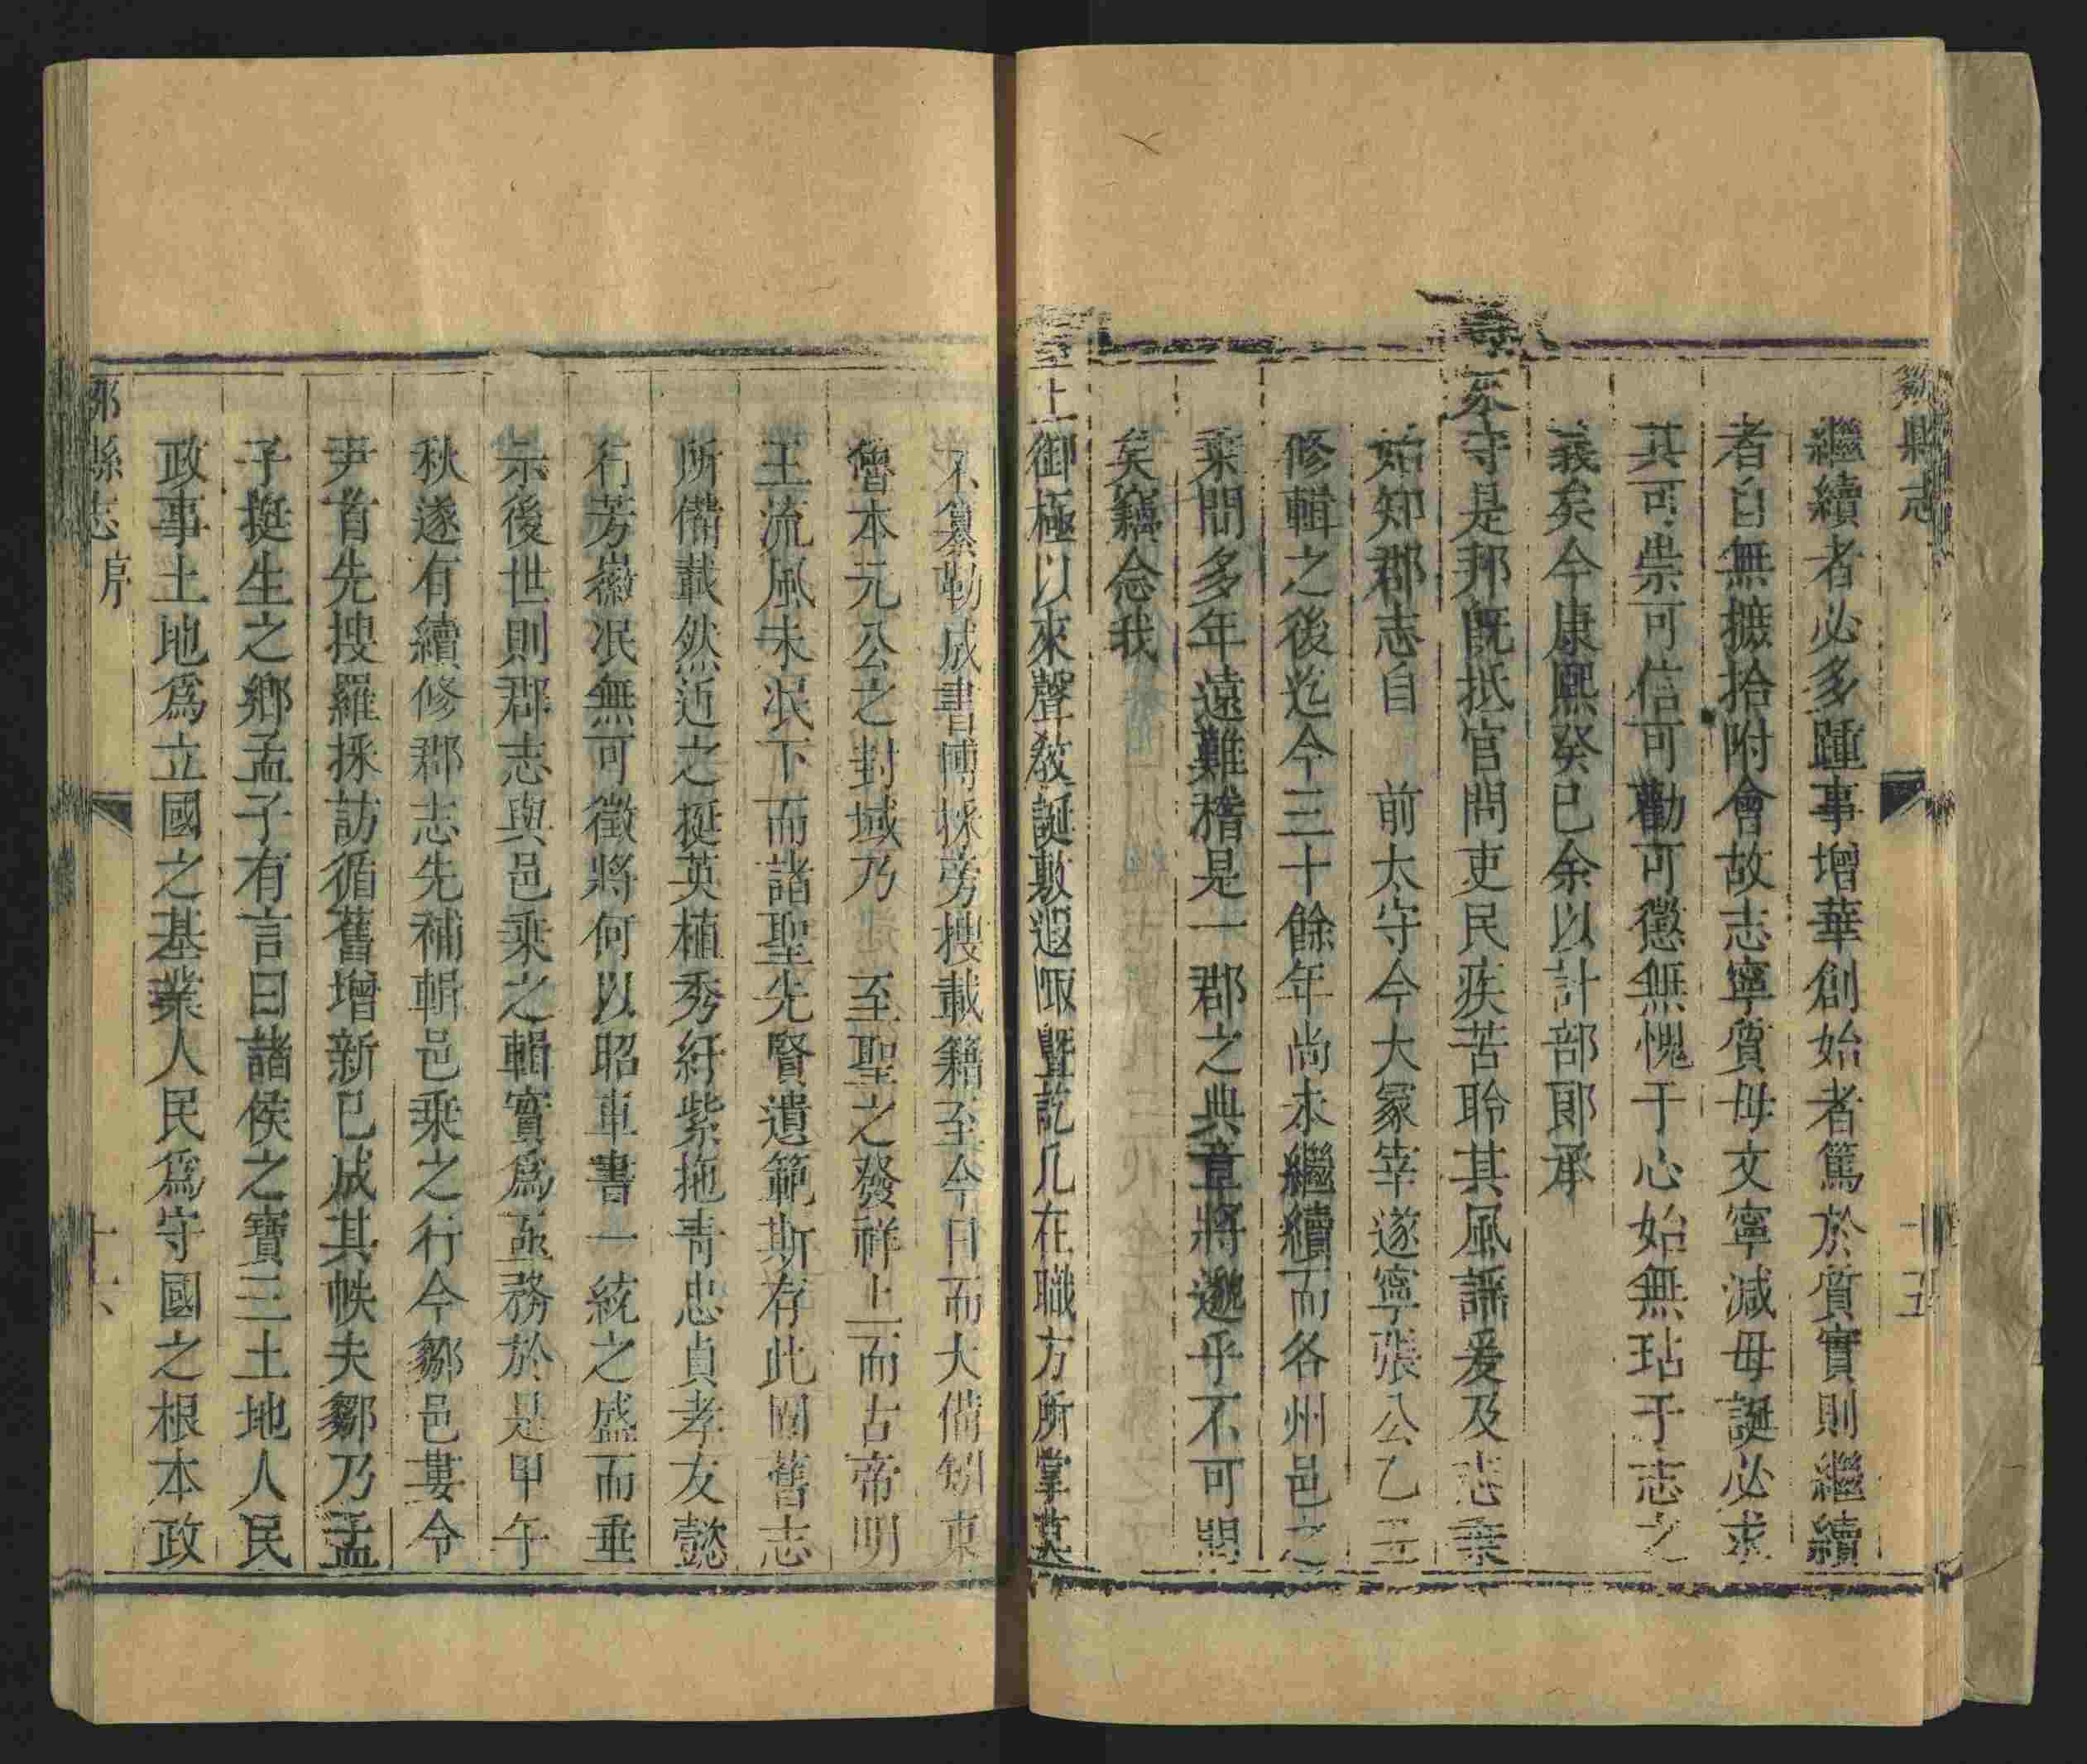 鄒縣志
十五
繼續者必多踵事增華創始者篤於質實則繼續
者自無摭拾附會故志寧質毋文寧減毋誕必求
其可崇可信可勸可懲無愧于心始無玷于志之
義矣今康熙癸巳余以計部郎承
守是邦既抵官問吏民疾苦聆其風謡爰及志乘
始知郡志自 前太守今大冢宰遂寧張公乙丑
修輯之後迄今三十餘年尚未繼續而各州邑之
乘間多年遠難稽是一郡之典章將邈乎不可問
矣竊念我
皇上御極以來聲敎誕敷遐陬曁訖凡在職方所掌莫
不纂勒成書博採旁搜載籍至今日而大備矧東
魯本元公之封域乃 至聖之發祥上而古帝明
王流風未泯下而諸聖先賢遺範斯存此固舊志
所備載然近之挺英植秀紆紫拖青忠貞孝友懿
行芳徽泯無可徵將何以昭車書一統之盛而垂
示後世則郡志與邑乘之輯實爲亟務於是甲午
秋遂有續修郡志先補輯邑乘之行今鄒邑婁令
尹首先搜羅採訪循舊增新已成其帙夫鄒乃孟
子挺生之鄉孟子有言曰諸侯之寶三土地人民
政事土地爲立國之基業人民爲守國之根本政
鄒縣志 序
十六